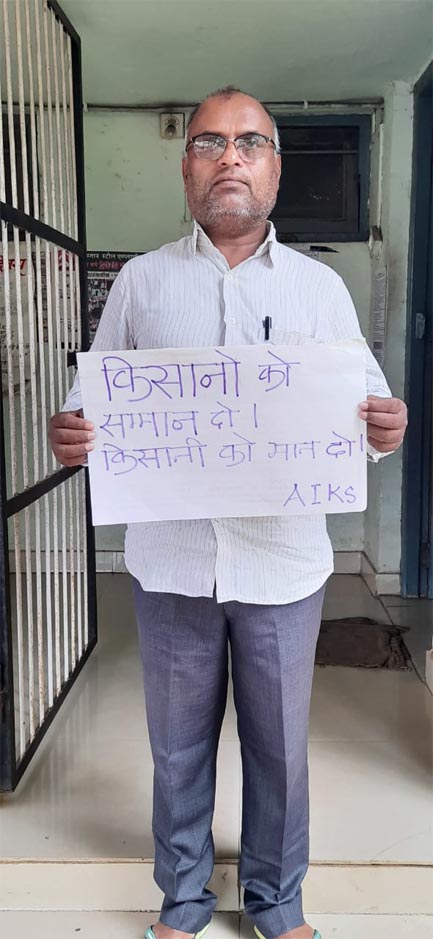 किसानो को
सम्मान दो।
किसानी को मान दो।
AIKS